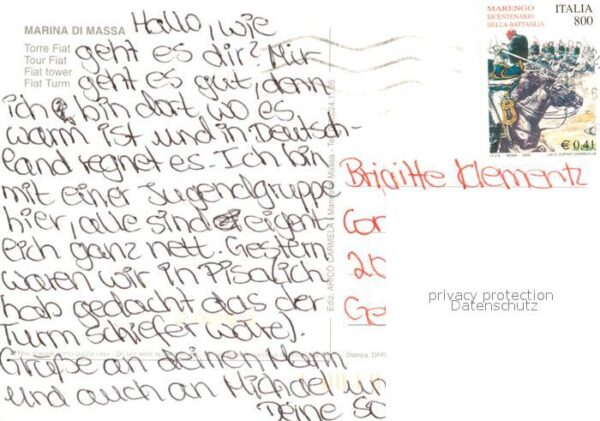 MARINA DI MASSA
Torre Fiat
Tour Fiat
Fiat tower
Fiat Turm
Hallo, wie
geht es dir? Mir
geht es gut, denn
ich bin dort, wo es
warm ist und in Deutsch-
land regnet es. Ich bin
mit einer Jugendgruppe
hier, alle sind eigent
lich ganz nett. Gestern
waren wir in Pisa(ich
hab gedacht das der
Turm schiefer wäre).
Grüße an deinen Mann
und auch an Michael
Deine
Ediz. ARICO CARMELA
Stampa
MARENGO
BICENTENARIO
DELLA BATTAGLIA
ITALIA
800
€ 0,41
Brigitte Klementz
privacy protection
Datenschutz